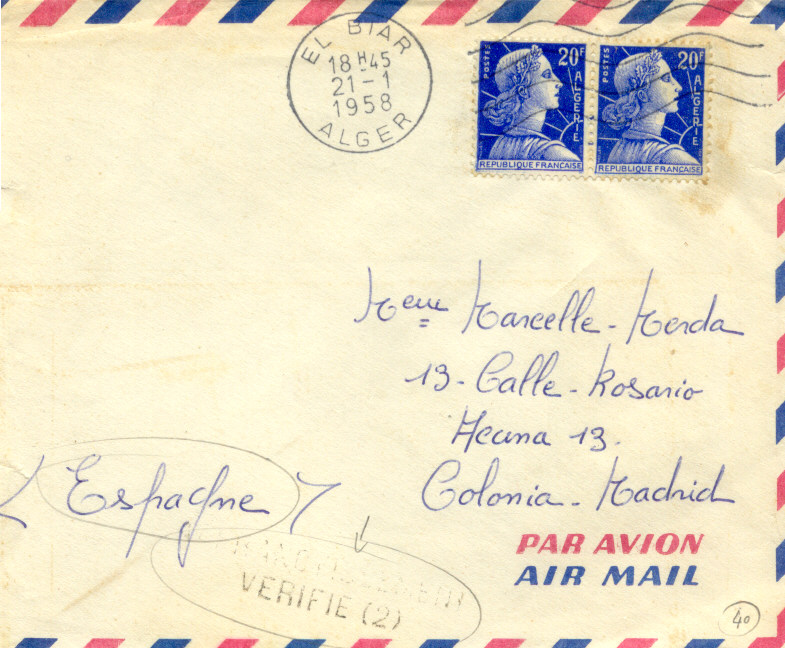 EL BIAR
18H45
21-1
1958
ALGER
POSTES 20F ALGERIE
REPUBLIQUE FRANÇAISE
POSTES 20F ALGERIE
REPUBLIQUE FRANÇAISE
Meme Marcelle-Merda
13-Calle-Rosario
13.
Colonia-Madrid
(Espagne)
VERIFIE (2)
PAR AVION
AIR MAIL
40